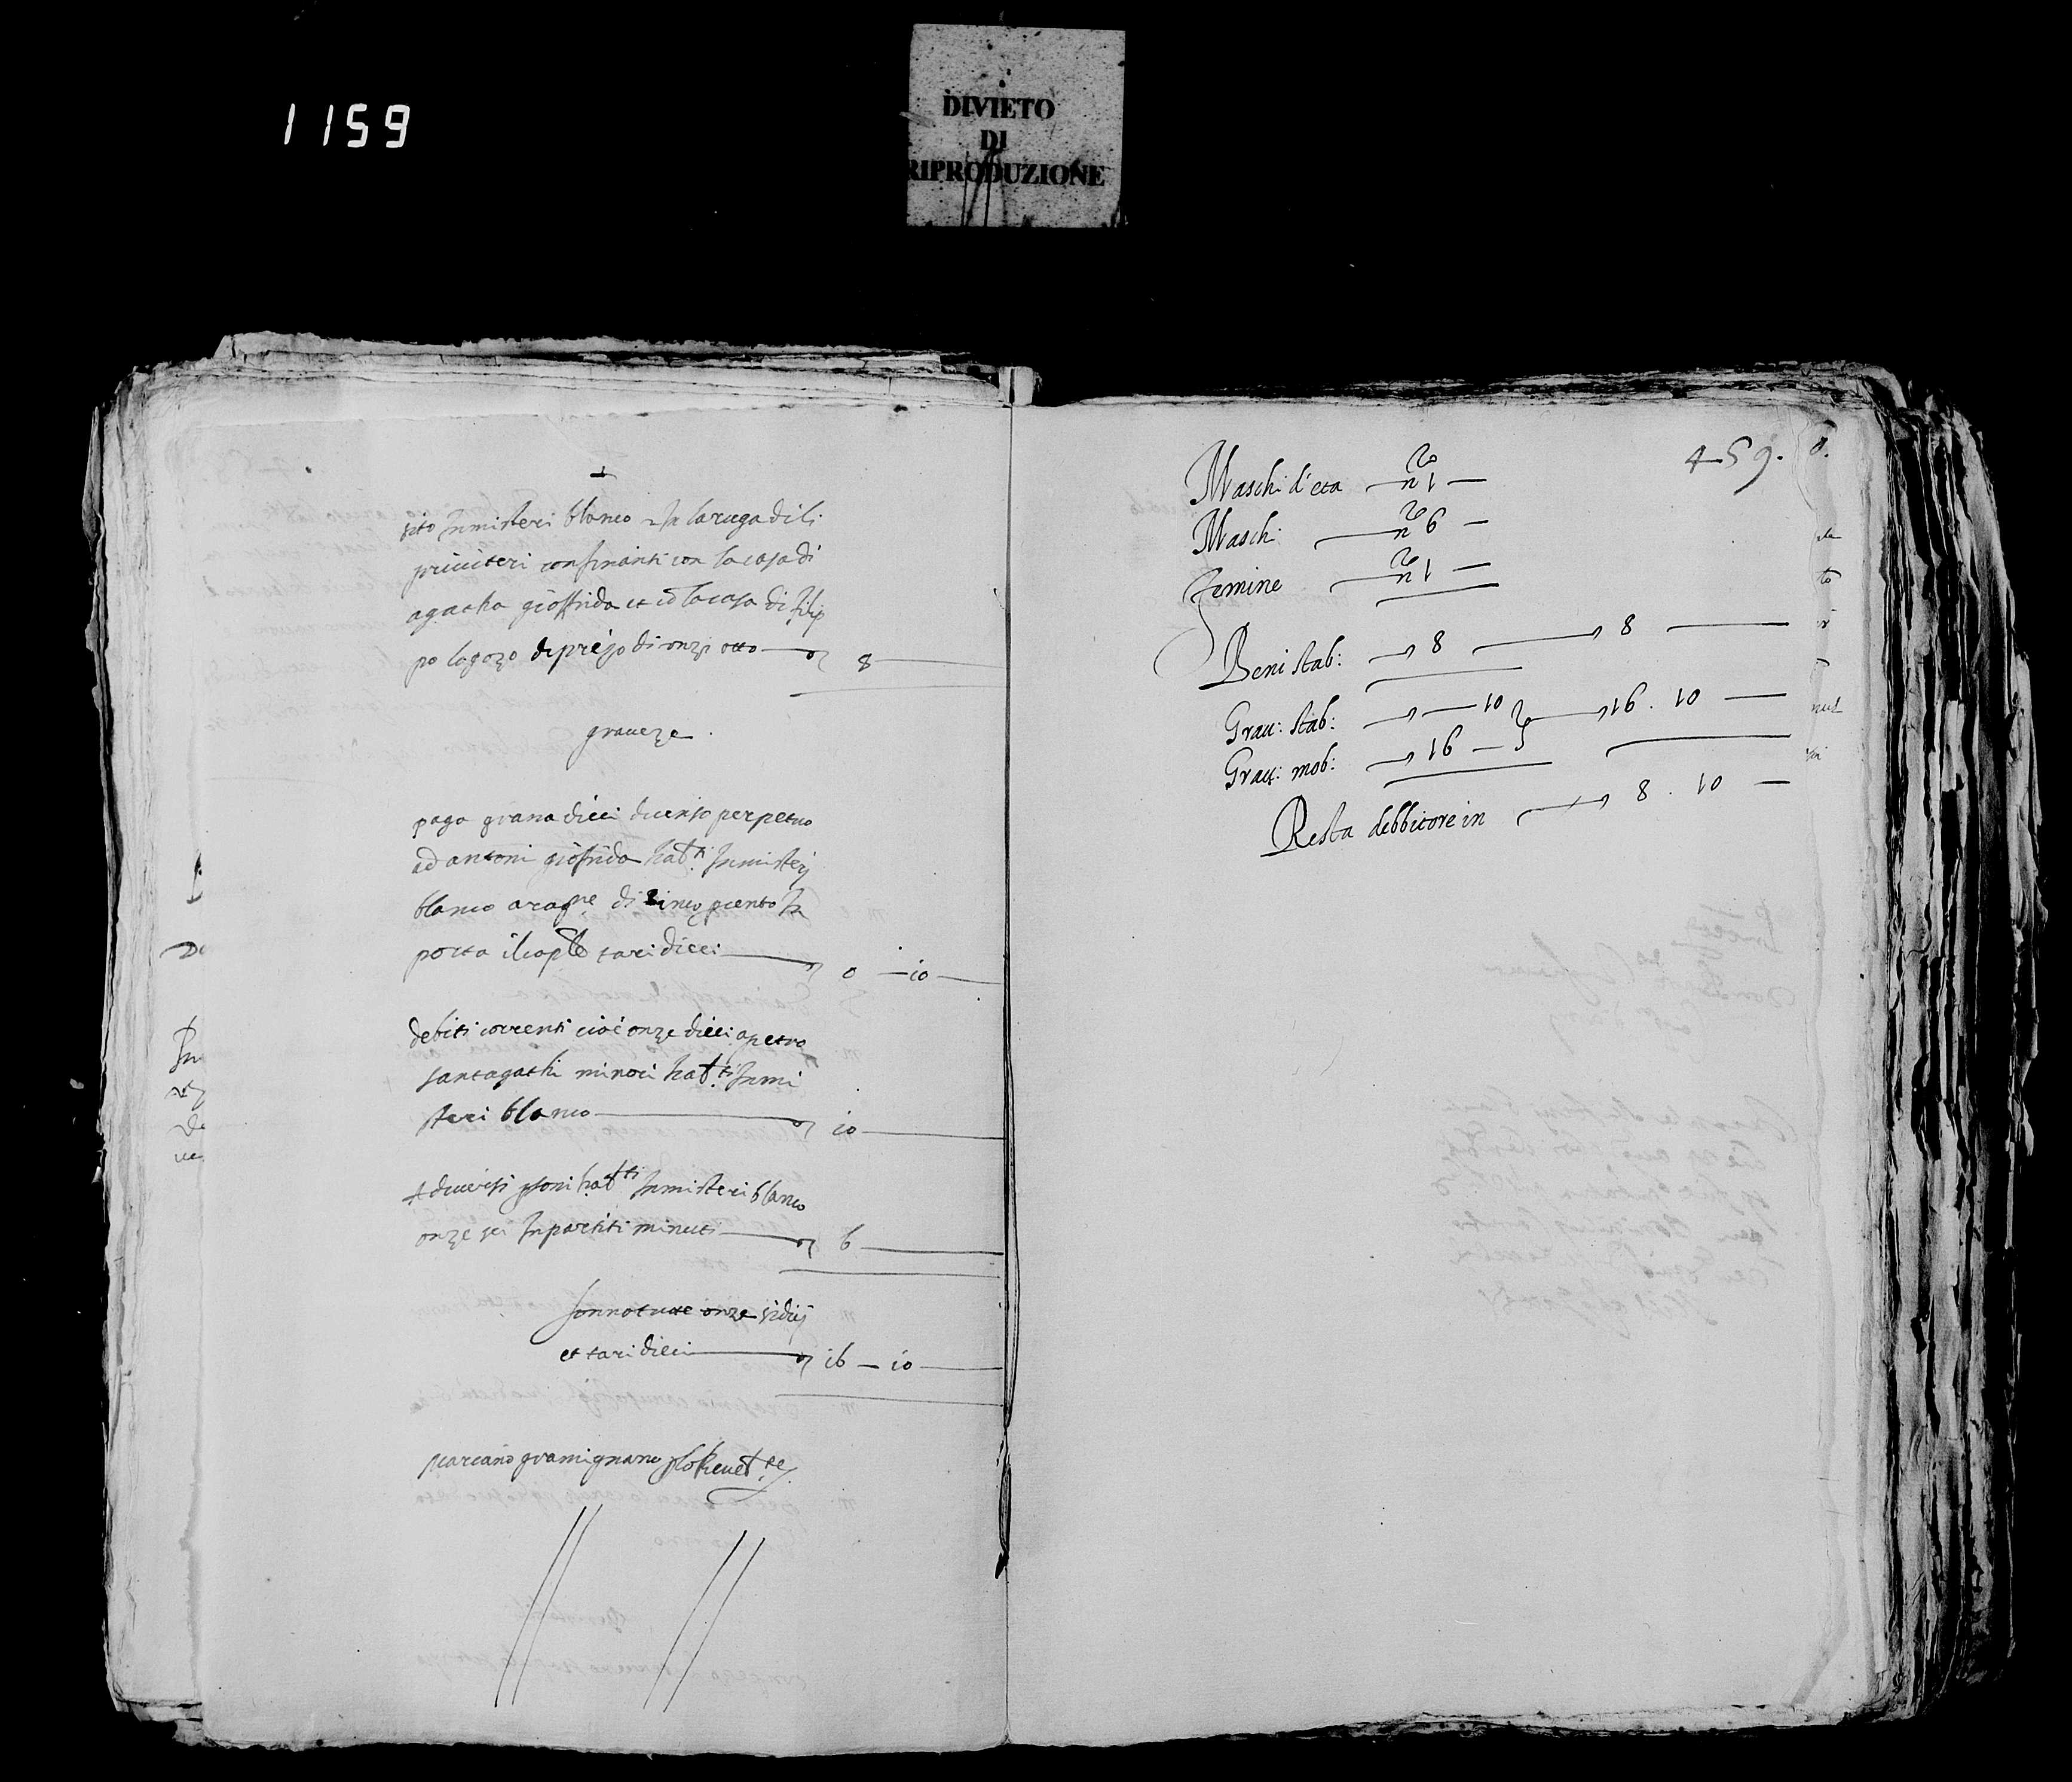 1159
DIVIETO
DI
RIPRODUZIONE
+
sito Inmisteri blanco In la ruga di li
priviteri confinanti con la casa di
agatha gioffrida et cō la casa di filip
po lagozo di prezo di onze otto 8
graveze.
paga grana dieci di censo perpetuo
ad antoni gioffrida hab.ti Inmisterj
blanco a ragne di cinco p cento In
porta il cap.le tari dieci 0 — 10
debiti correnti cioè onze dieci a petro
santagathi minori hab.ti Inmi
steri blanco 10
A diversi psoni hab.ti Inmisteri blanco
onze sei In partiti minuti 6
sonno tutte onze sidicj
et tari dieci 16 — 10
marcano gramignano p lo Revel.te
459.
Maschi d'eta no 1 —
Maschi no 6 —
Femine no 1 —
Beni stab: 8 8
Grav: stab: — 10 16 . 10 —
Grav: mob: 16 —
Resta debbitore in 8 . 10 —